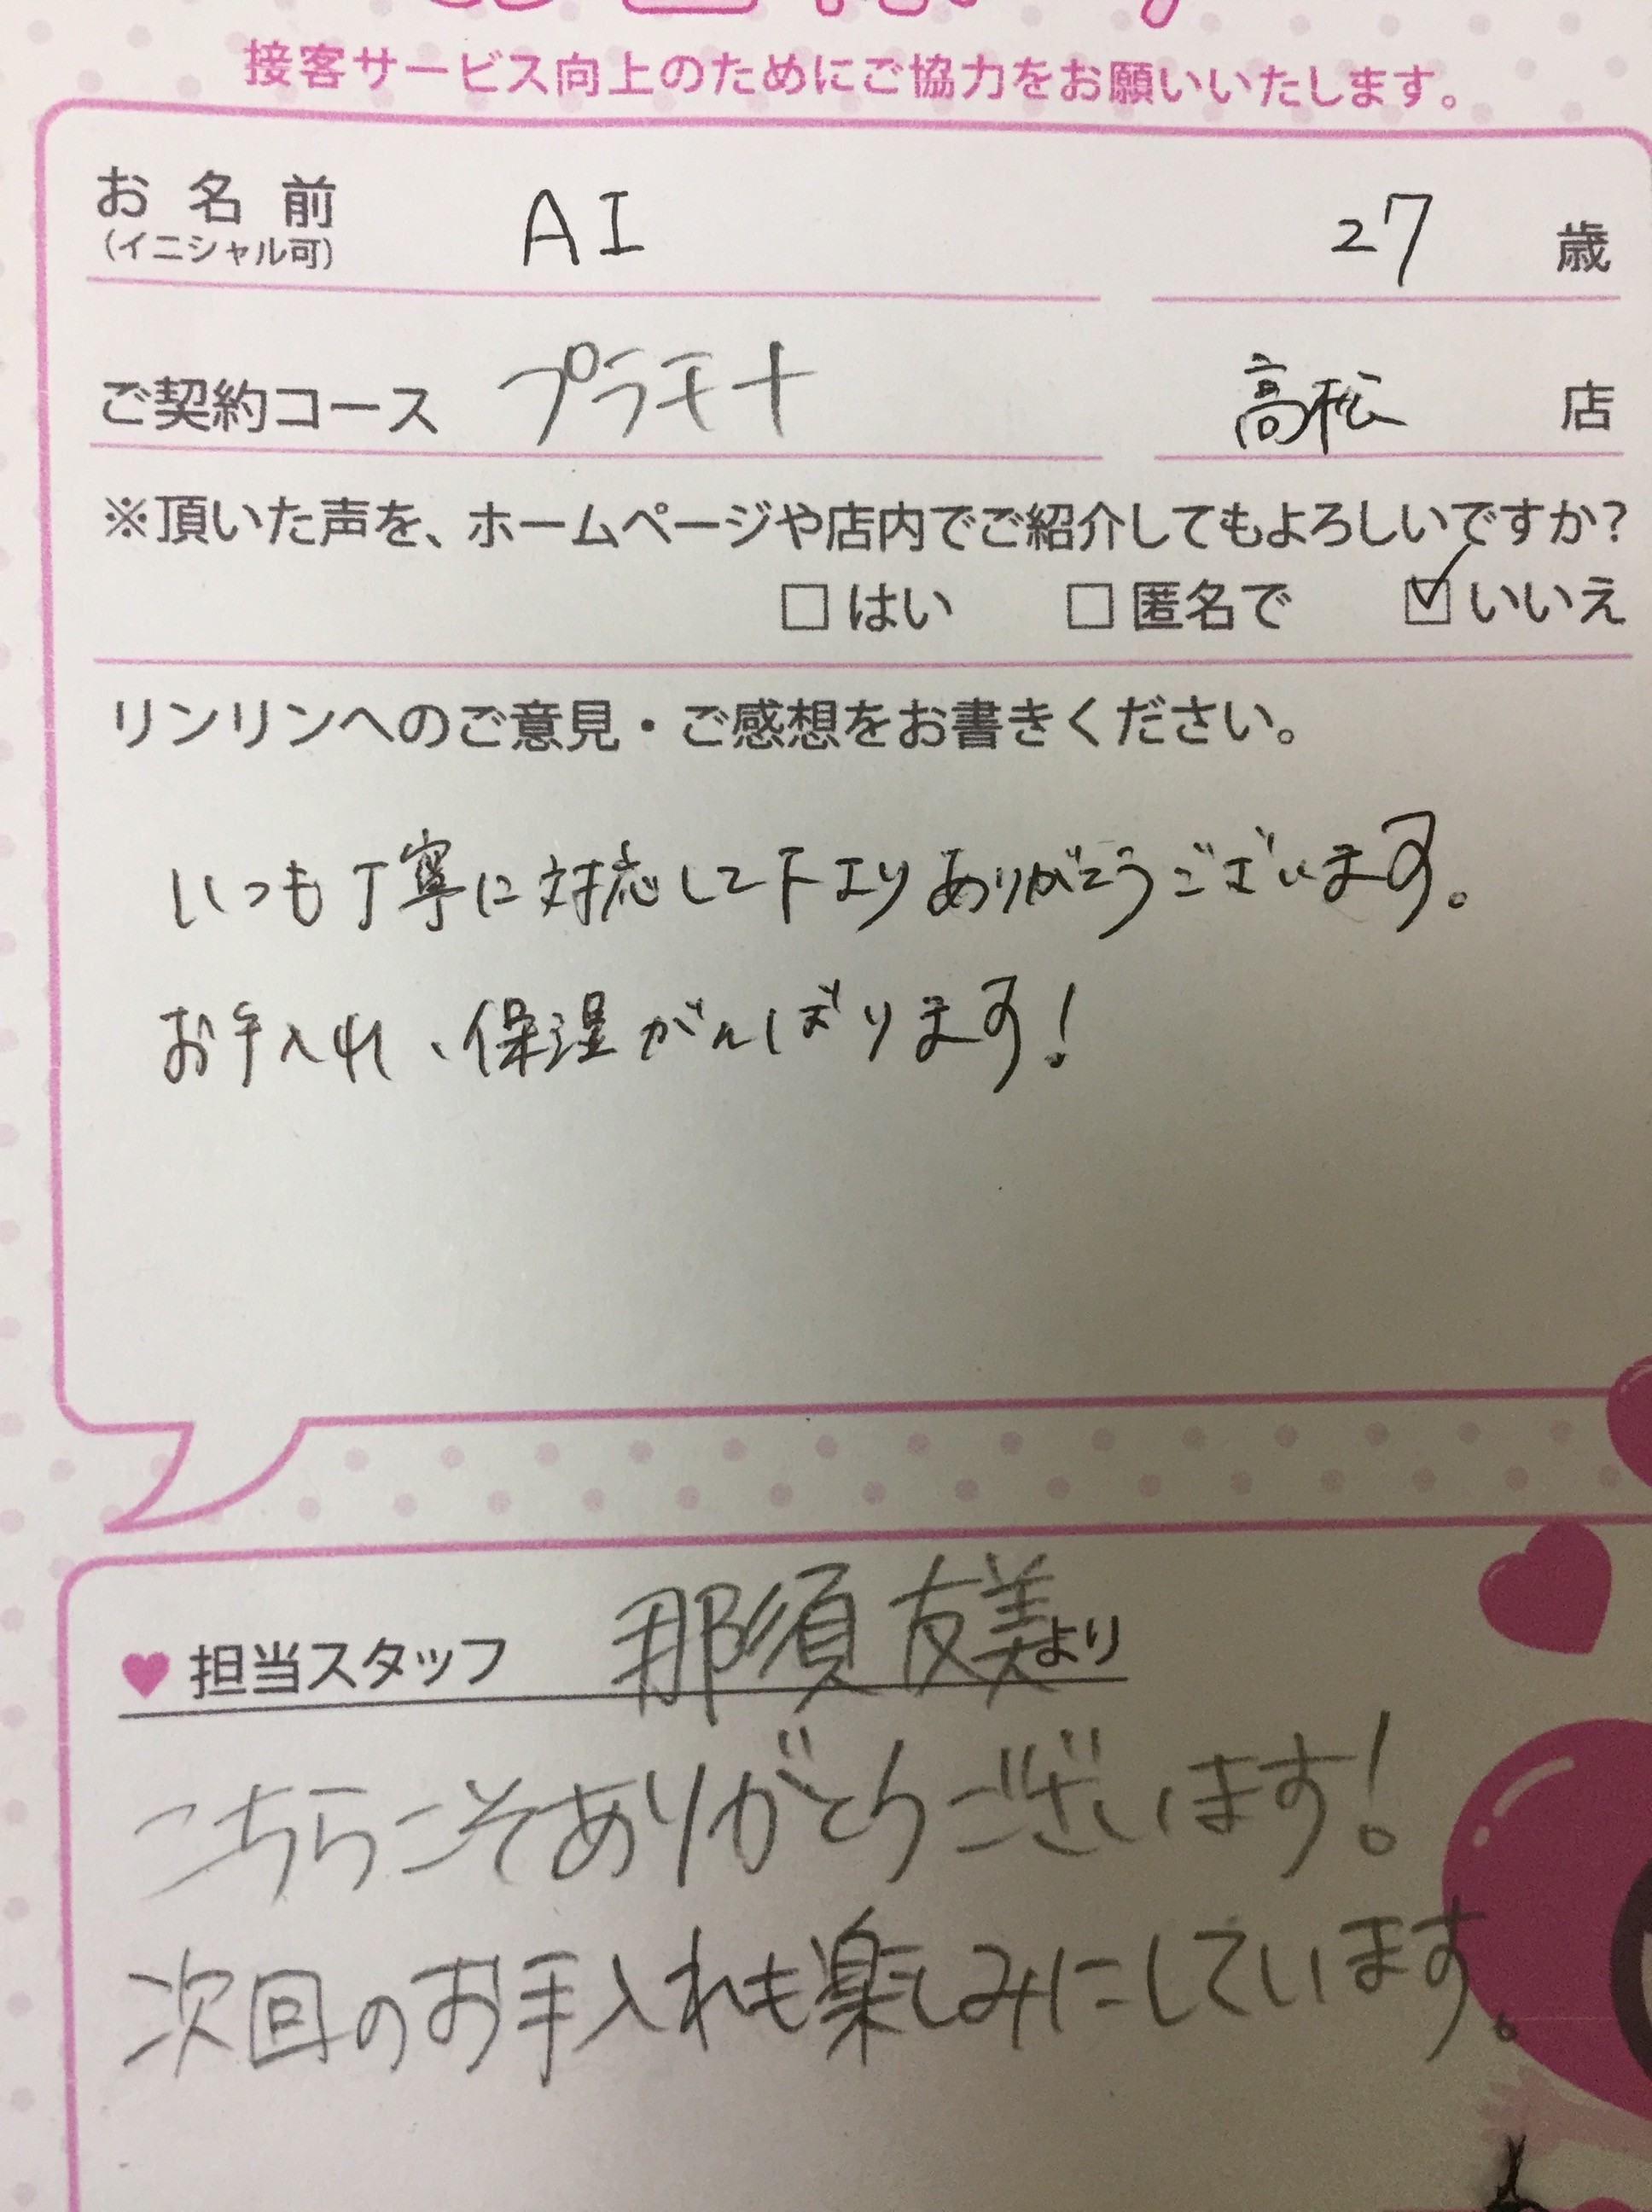 接客サービス向上のためにご協力をお願いいたします。
お名前 AI 27 歳
(イニシャル可)
ご契約コース プラチナ 高松 店
※頂いた声を、ホームページや店内でご紹介してもよろしいですか？
□はい □匿名で ☑いいえ
リンリンへのご意見・ご感想をお書きください。
いつも丁寧に対応して下さりありがとうございます。
お手入れ、保湿がんばります！
♥担当スタッフ 那須友美より
こちらこそありがとうございます！
次回のお手入れも楽しみにしています。